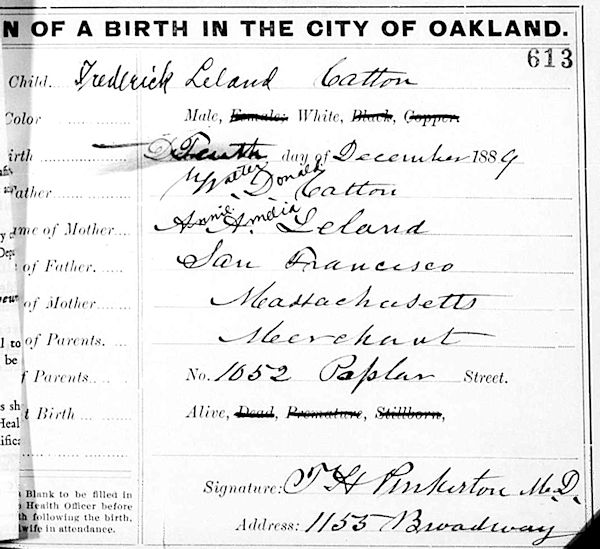 N OF A BIRTH IN THE CITY OF OAKLAND.
613
Child. Frederick Leland Catton
Color Male, Female; White, Black, Copper.
irth Tenth day of December 1889
ather Walter Donald Catton
me of Mother Annie Amelia A. Leland
of Father. San Francisco
of Mother Massachusetts
of Parents. Merchant
f Parents. No. 1052 Poplar Street.
t Birth Alive, Dead, Premature, Stillborn,
Signature: T H Pinkerton M.D.
Address: 1155 Broadway
Blank to be filled in
Health Officer before
th following the birth,
wife in attendance.